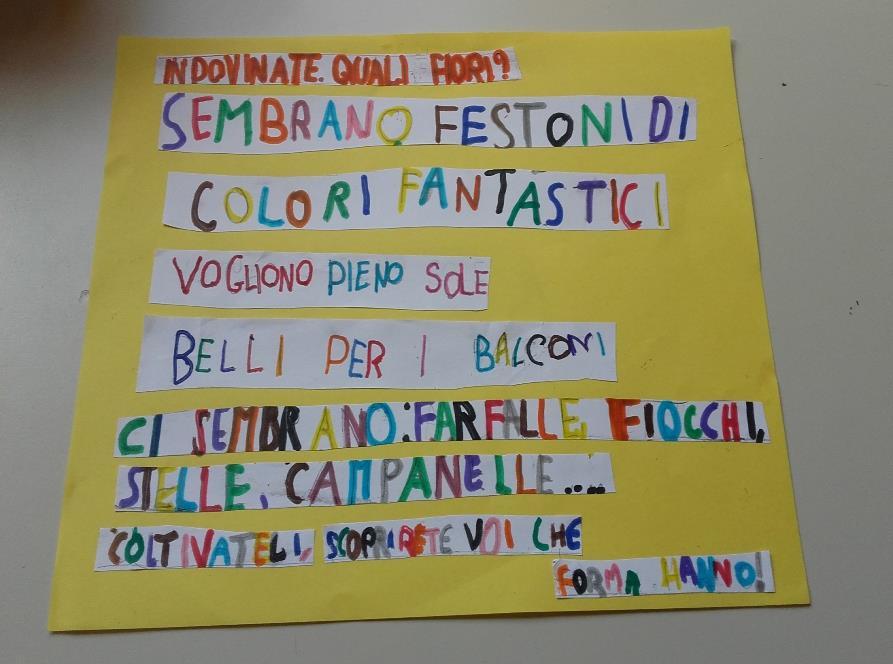 INDOVINATE. QUALI FIORI?
SEMBRANO FESTONI DI
COLORI FANTASTICI
VOGLIONO PIENO SOLE
BELLI PER I BALCONI
CI SEMBRANO: FARFALLE, FIOCCHI,
STELLE, CAMPANELLE....
COLTIVATELI, SCOPRIRETE VOI CHE
FORMA HANNO!